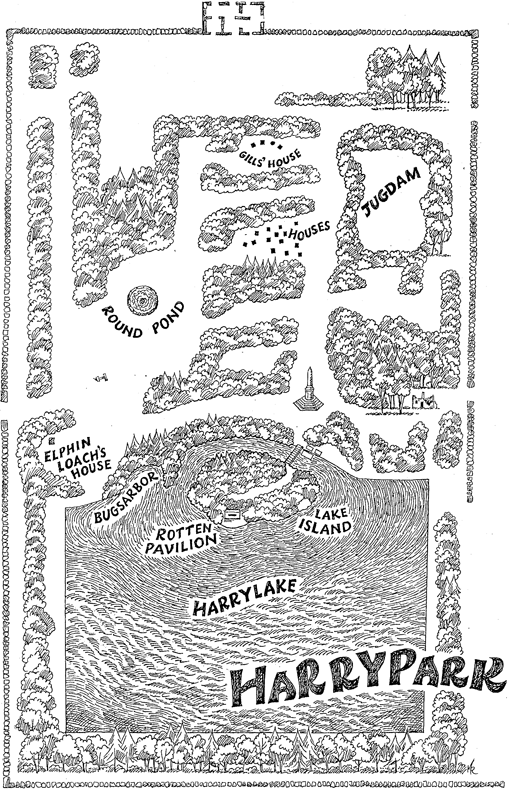 GILLS' HOUSE
JUGDAM
HOUSES
ROUND POND
ELPHIN
LOACH'S
HOUSE
BUGSARBOR
ROTTEN
PAVILION
LAKE
ISLAND
HARRYLAKE
HARRYPARK